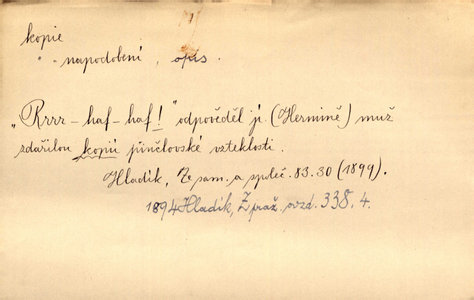 kopie
" " napodobení, opis.
„Rrrr – haf – haf!" odpověděl jí (Hermině) muž
zdařilou kopií pinčlovské vzteklosti.
Hladík, Ze sam. a společ. 83.30 (1899).
1894 Hladík, Z praž. ovzd. 338.4.